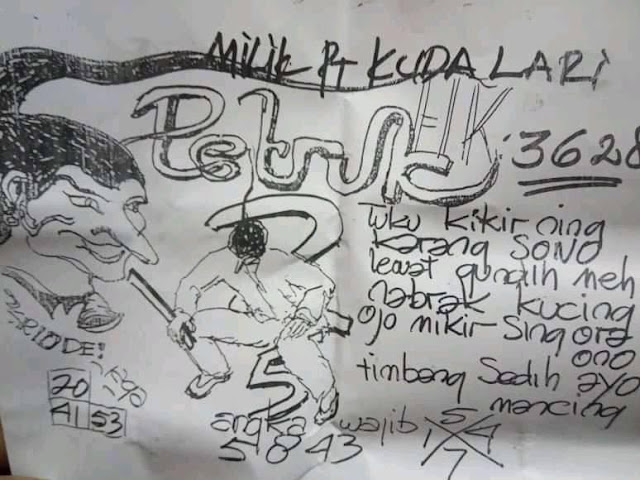 MILIK PT KUDA LARI
Petruk
: 3628
Tuku kikir ning
karang SONO
lewat gunuih meh
nabrak kucing
ojo mikir sing ora
ono
timbang Sedih ayo
mancing
PERIODE:
20
A1 53
2
5
angka wajib
5 8 4 3
5
1 4
7